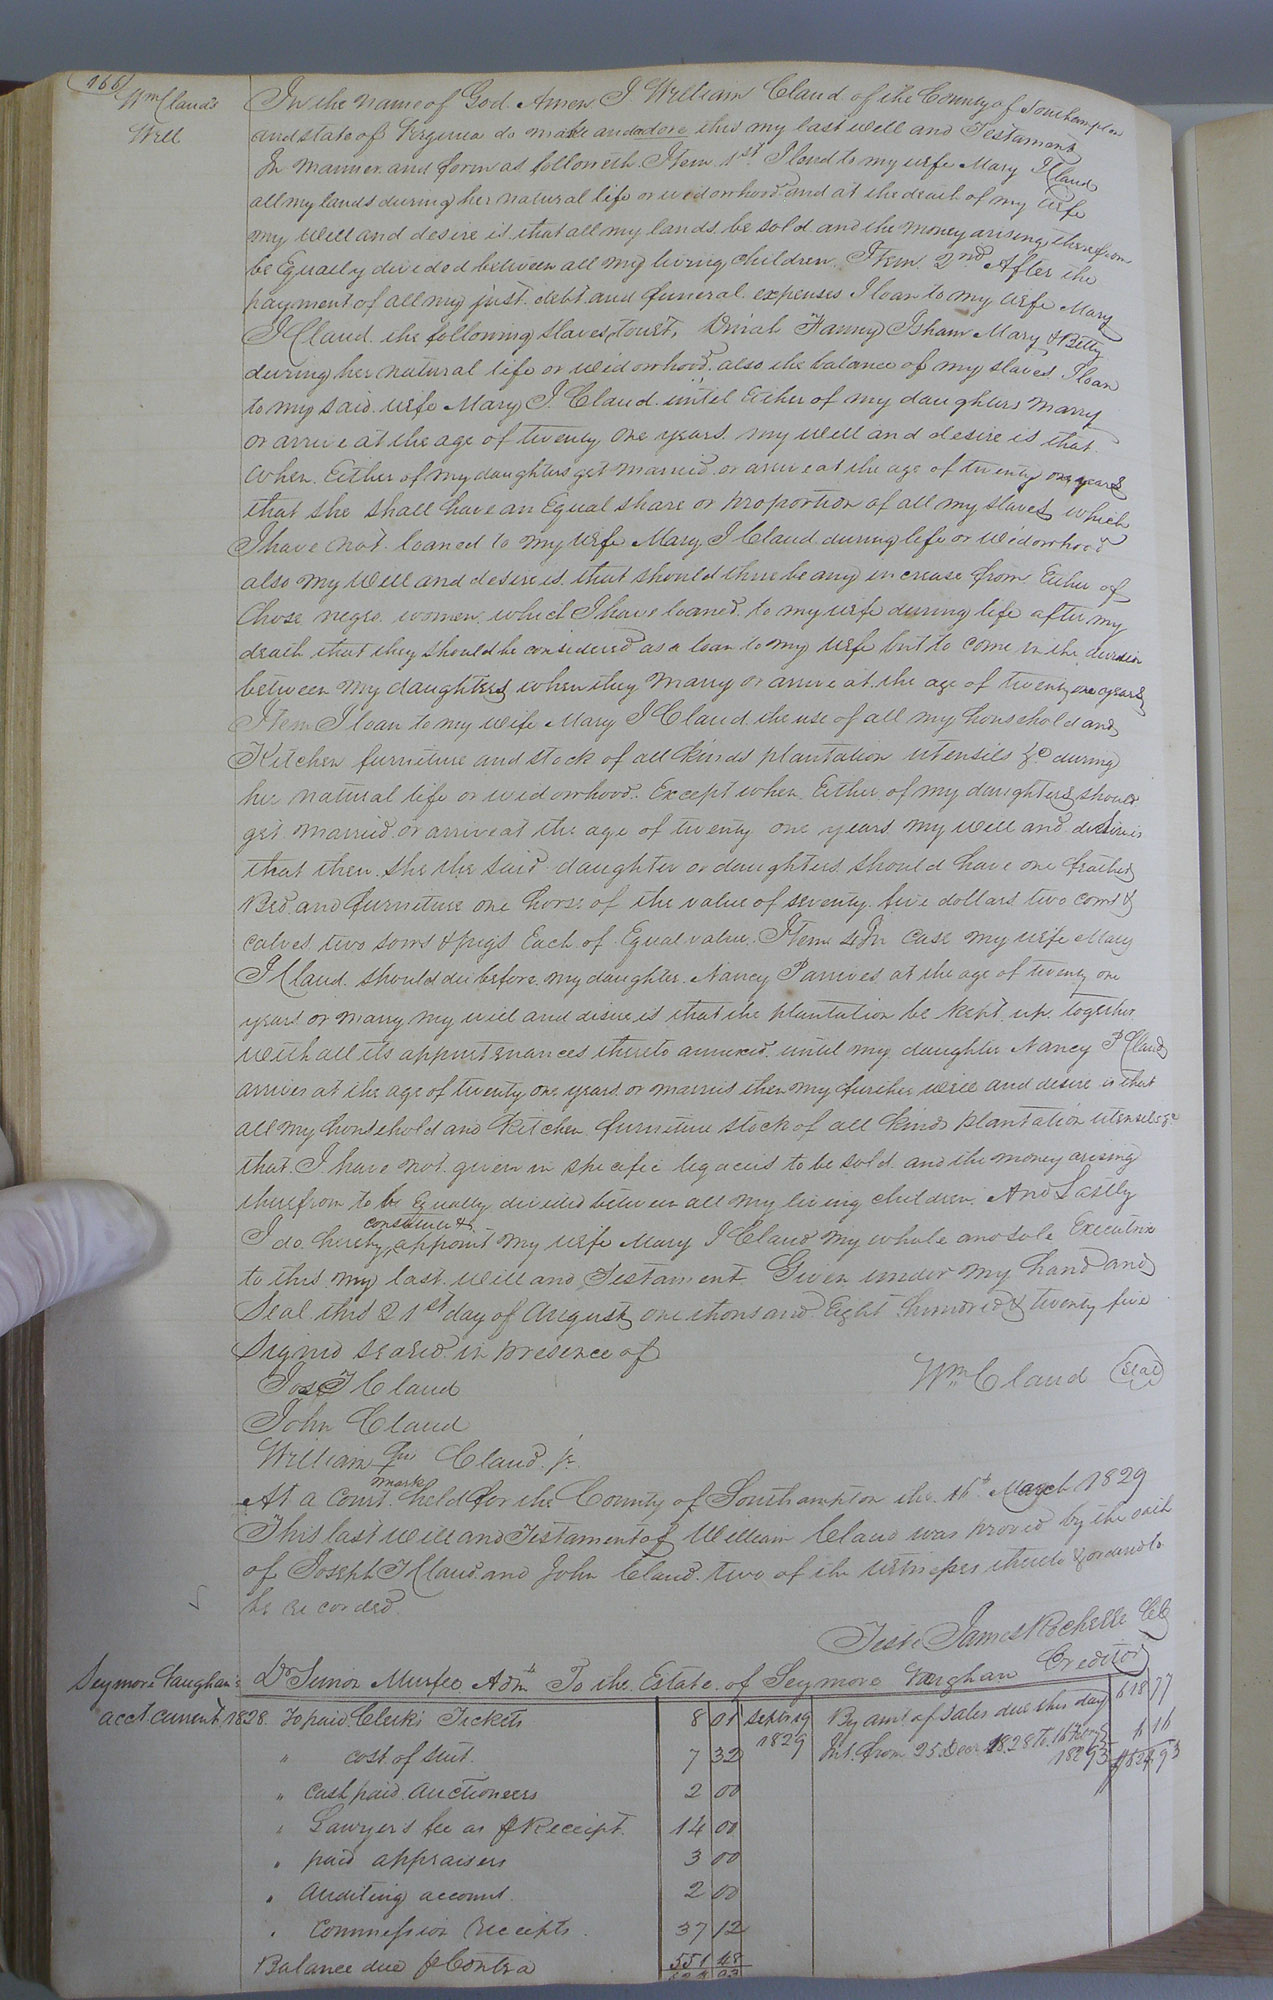 166
Wm Claud's
Will
In the name of God Amen I William Claud of the County of Southampton
and state of Virginia do make and this my last will and Testament
In manner and form as followeth Item 1st I lend to my wife Mary J Claud
all my lands during her natural life or widowhood and at the death of my wife
my will and desire is that all my lands be sold and the money arising therefrom
be Equally divided between all my living children. Item 2nd After the
payment of all my just debt and funeral expenses I loan to my wife Mary
J Claud the following slaves, towit, Vinah Fanny Isham Mary & Betty
during her natural life or widowhood also the balance of my slaves I loan
to my said wife Mary J. Claud until Either of my daughters marry
or arrive at the age of twenty one years my will and desire is that
when Either of my daughters get married or arrive at the age of twenty one years
that she shall have an Equal share or proportion of all my slaves which
I have not loaned to my wife Mary J Claud during life or widowhood
also my will and desire is that should there be any increase from Either of
those negro women which I have loaned to my wife during life after my
death that they should be considered as a loan to my wife but to come in the division
between my daughters when they marry or arrive at the age of twenty one years
Item I loan to my wife Mary J Claud the use of all my household and
Kitchen furniture and stock of all kinds plantation utensils &c during
her natural life or widowhood. Except when Either of my daughters should
get married or arrive at the age of twenty one years my will and desire is
that then she the said daughter or daughters should have one feather
Bed and furniture one horse of the value of seventy five dollars two cows &
calves two sows & pigs Each of Equal value. Item In case my wife Mary
J Claud should die before my daughter Nancy P arrives at the age of twenty one
years or marry my will and desire is that the plantation be kept up together
with all its appurtenances thereto annexed until my daughter Nancy P Claud
arrives at the age of twenty one years or marries then my further will and desire is that
all my household and kitchen furniture stock of all kinds plantation utensels &c
that I have not given in specific legacies to be sold and the money arising
therefrom to be Equally divided between all my living children. And Lastly
constitute &
I do hereby appoint my wife Mary J Claud my whole and sole Executrix
to this my last will and Testament. Given under my hand and
Seal this 21st day of August one thousand Eight hundred & twenty five
Signed sealed in presence of
Wm Claud (seal)
Jos J Claud
John Claud
William his Claud jr
mark
At a Court held for the County of Southampton the 16th March 1829
This last will and Testament of William Claud was proved by the oath
of Joseph J Claud and John Claud two of the witnesses thereto & ordered to
be recorded.
Teste James Rochelle CC
Seymore Vaughan's Dr Simon Murfee Admr To the Estate of Seymore Vaughan Creditor
acct current 1828 To paid Clerk's Tickets 8 01 Sept 19 By amt of sales due this day 618 77
" cost of suit 7 32 1829 Int. from 25 Decr 1828 to 6 16
1829
" Cash paid Auctioneers 2 00
" Lawyer's fee as pr Receipt 14 00
" paid appraisers 3 00
" Auditing account. 2 00
" Commission Receipts 37 12
Balance due pr Contra 551 48